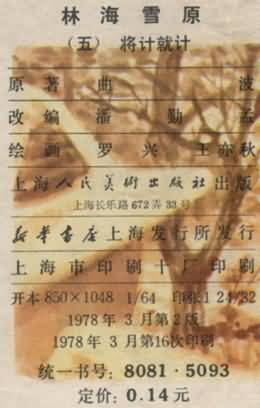 林海雪原
（五） 将计就计
原著 曲波
改编 潘勤孟
绘画 罗兴 王亦秋
上海人民美術出版社出版
上海长乐路672弄33号
新华書店上海发行所发行
上海市印刷十厂印刷
开本 850×1048 1/64 印张 1 24/32
1978年3月第2版
1978年3月第16次印刷
统一书号：8081·5093
定价：0.14元